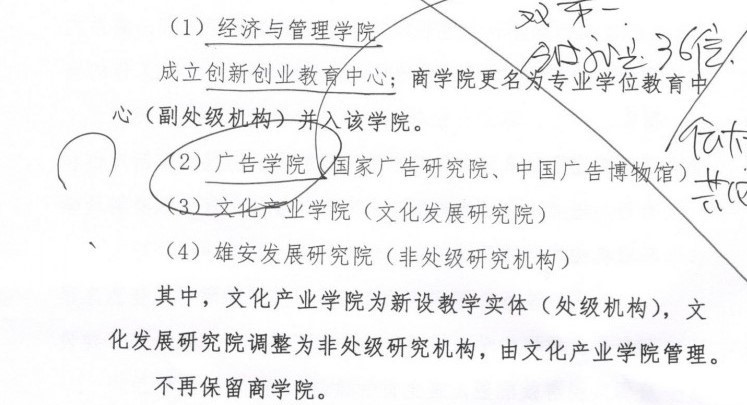 （1）经济与管理学院
成立创新创业教育中心；商学院更名为专业学位教育中
心（副处级机构）并入该学院。
（2）广告学院（国家广告研究院、中国广告博物馆）
（3）文化产业学院（文化发展研究院）
（4）雄安发展研究院（非处级研究机构）
其中，文化产业学院为新设教学实体（处级机构），文
化发展研究院调整为非处级研究机构，由文化产业学院管理。
不再保留商学院。
双第一.
36位.